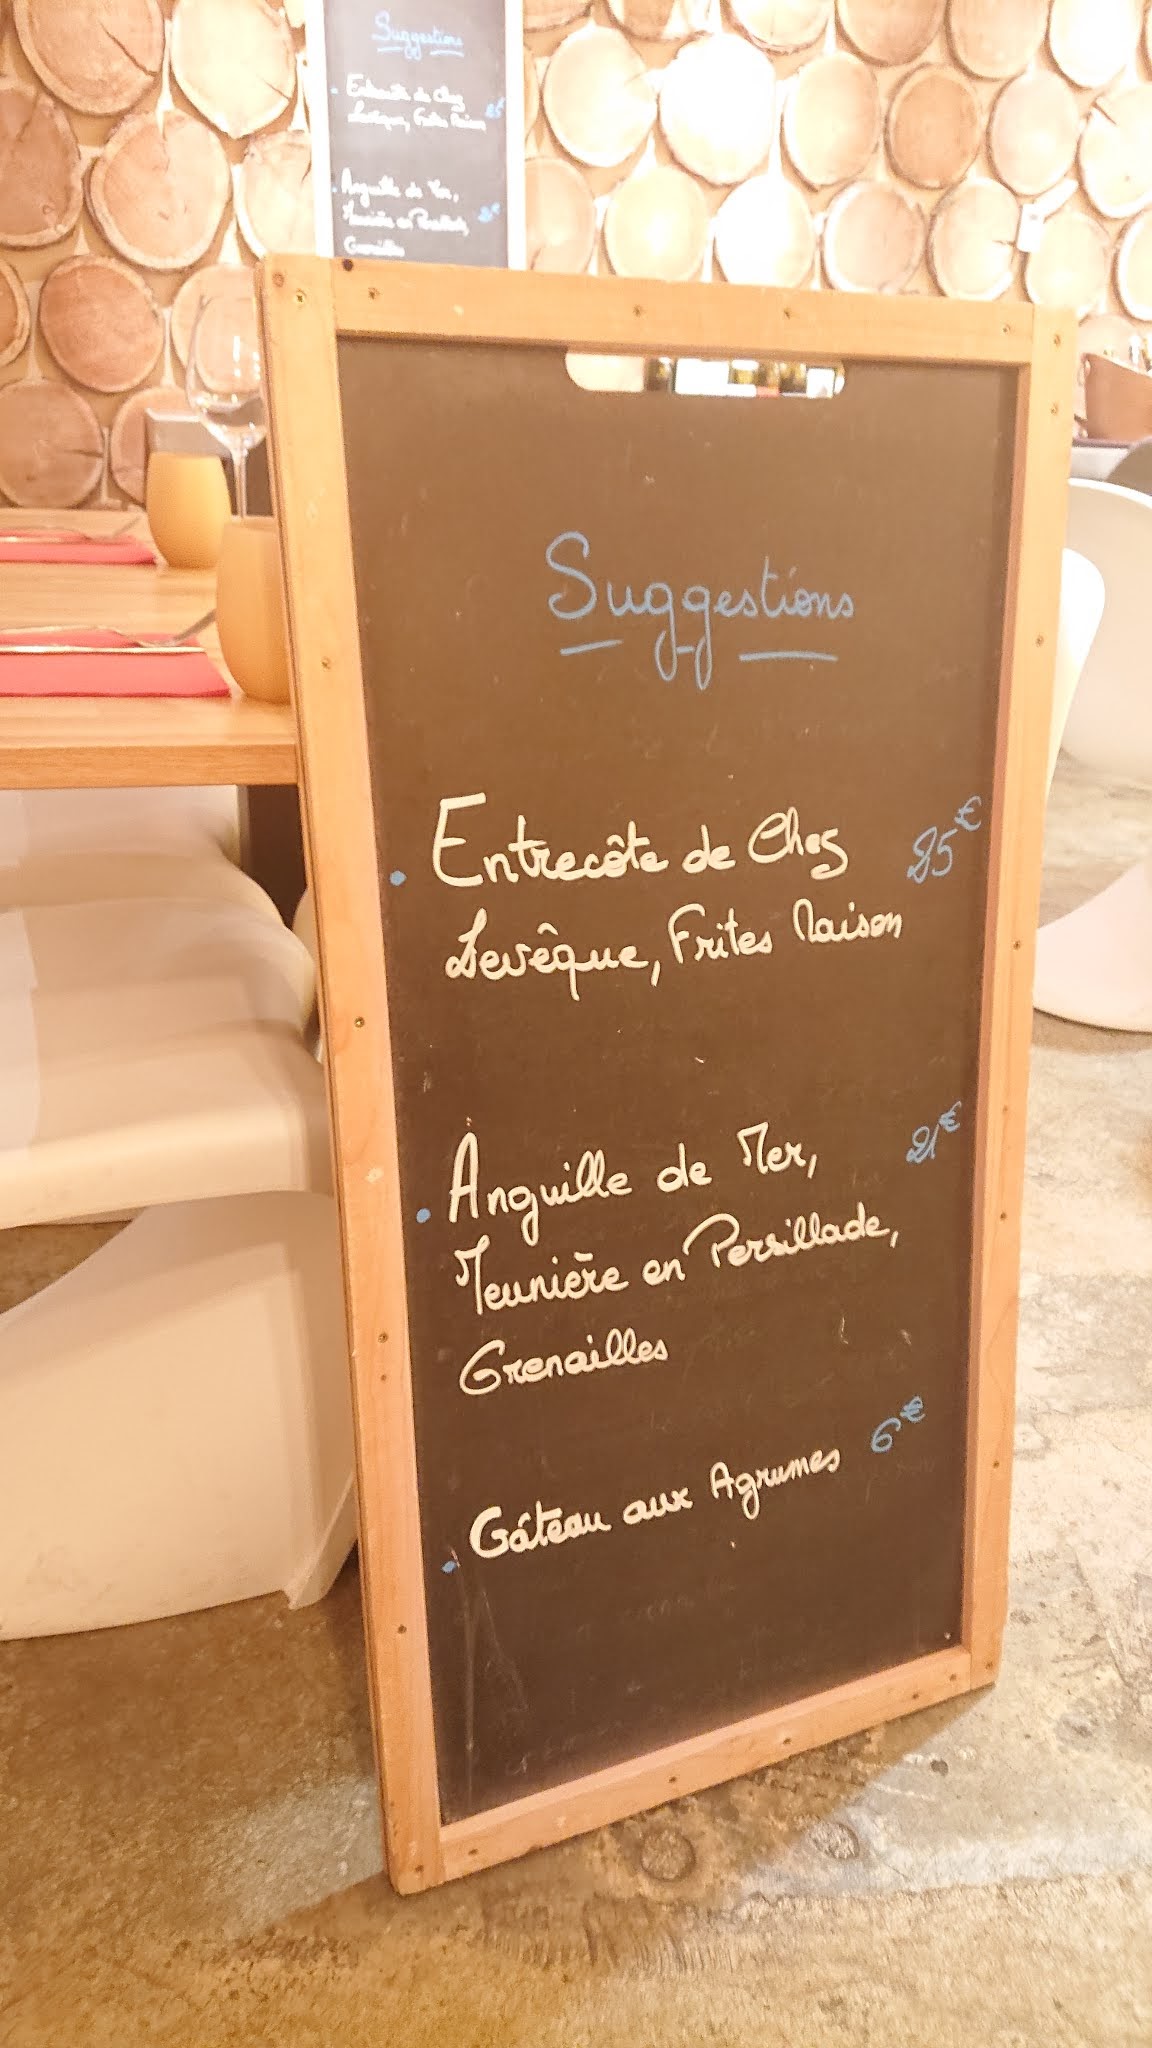 Suggestions
• Entrecôte de Chez 25€
Levêque, Frites Maison
• Anguille de Mer,
Meunière en Persillade, 21€
Grenailles
Suggestions
• Entrecôte de Chez 25€
Levêque, Frites Maison
• Anguille de Mer, 21€
Meunière en Persillade,
Grenailles
• Gâteau aux Agrumes 6€